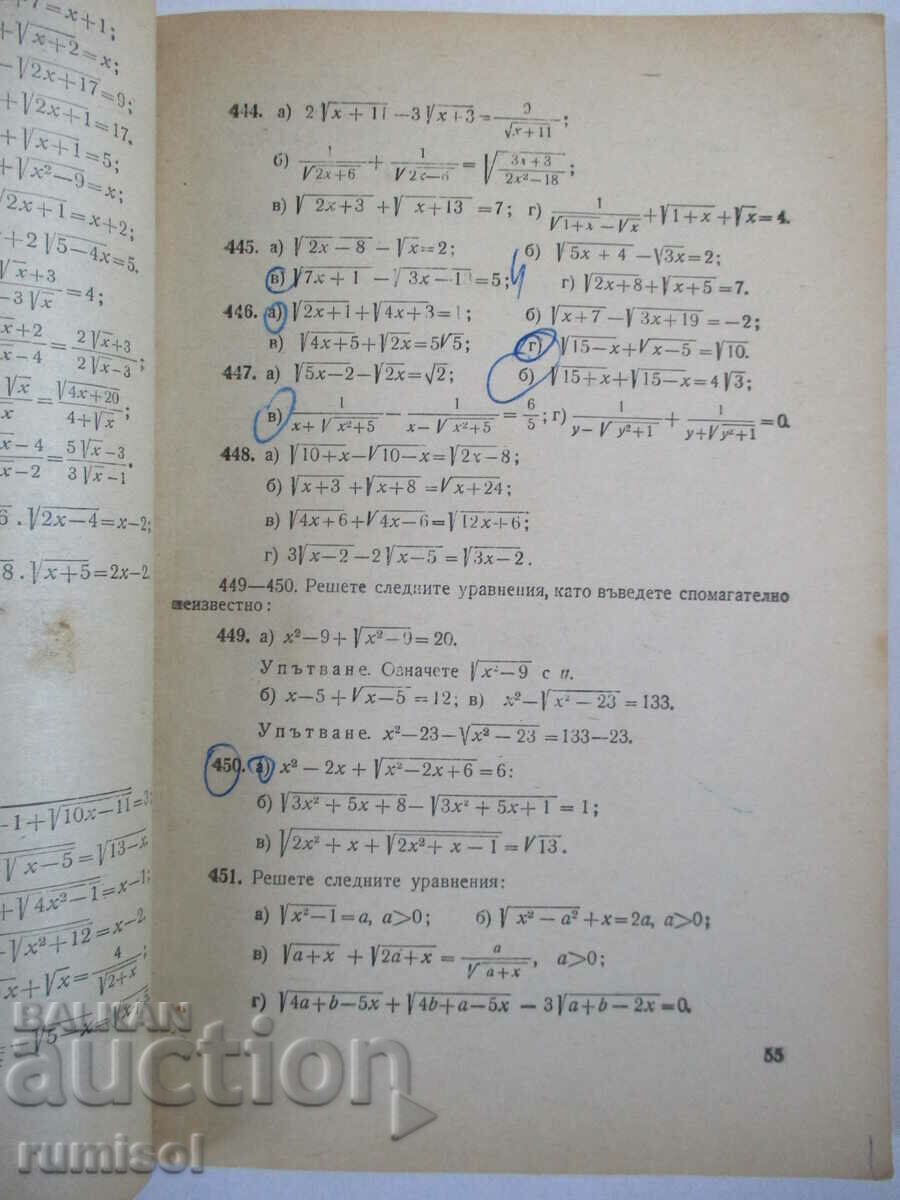 +7=x+1;
+√x+2=x;
−√2x+17=9;
+√2x+1=17.
+√x+1=5;
+√x²−9=x;
√2x+1=x+2;
x+2√5−4x=5.
√x+3
−3√x =4;
x+2/x−4 = 2√x+3/2√x−3;
√x/x = √4x+20/4+√x;
x−4/x−2 = 5√x−3/3√x−1.
6.√2x−4=x−2;
8.√x+5=2x−2.
−1+√10x−11=3;
√x−5=√13−x.
+√4x²−1=x−1;
−√x²+12=x−2
x+√x=4/√2+x;
444. а) 2√x+11−3√x+3=9/√x+11;
б) 1/√2x+6 + 1/√2x−6 = √3x+3/2x²−18;
в) √2x+3+√x+13=7; г) 1/√1+x−√x+√1+x+√x=4.
445. а) √2x−8−√x=2; б) √5x+4−√3x=2;
в) √7x+1−√3x−1=5; г) √2x+8+√x+5=7.
446. а) √2x+1+√4x+3=1; б) √x+7−√3x+19=−2;
в) √4x+5+√2x=5√5; г) √15−x+√x−5=√10.
447. а) √5x−2−√2x=√2; б) √15+x+√15−x=4√3;
в) 1/x+√x²+5 − 1/x−√x²+5 = 6/5; г) 1/y−√y²+1 + 1/y+√y²+1 =0.
448. а) √10+x−√10−x=√2x−8;
б) √x+3+√x+8=√x+24;
в) √4x+6+√4x−6=√12x+6;
г) 3√x−2−2√x−5=√3x−2.
449—450. Решете следните уравнения, като въведете спомагателно
неизвестно:
449. а) x²−9+√x²−9=20.
Упътване. Означете √x²−9 с u.
б) x−5+√x−5=12; в) x²−√x²−23=133.
Упътване. x²−23−√x²−23=133−23.
450. а) x²−2x+√x²−2x+6=6:
б) √3x²+5x+8−√3x²+5x+1=1;
в) √2x²+x+√2x²+x−1=√13.
451. Решете следните уравнения:
а) √x²−1=a, a>0; б) √x²−a²+x=2a, a>0;
в) √a+x+√2a+x=a/√a+x, a>0;
г) √4a+b−5x+√4b+a−5x−3√a+b−2x=0.
55
BALKAN
auction
rumisol